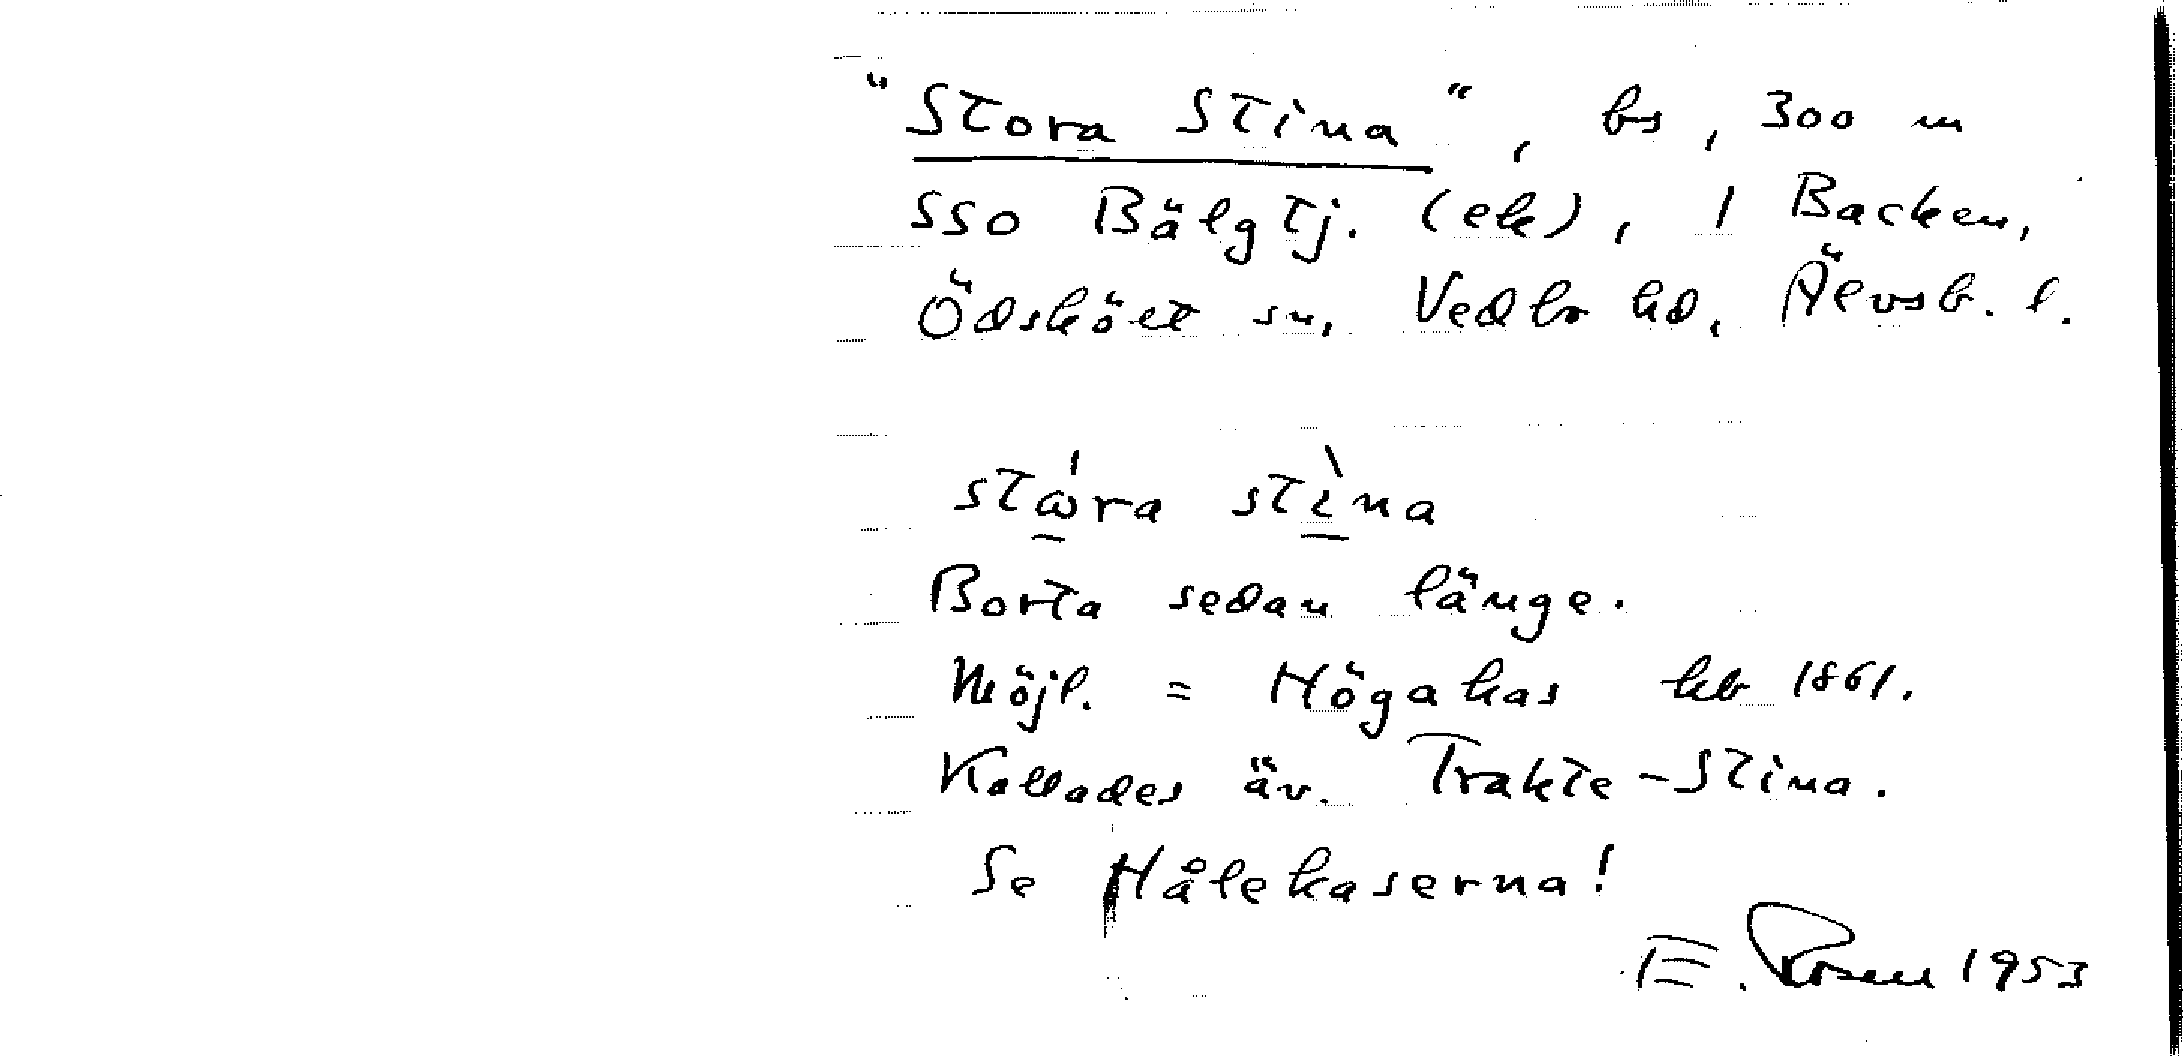 "Stora Stina", bs, 300 m
SSO Bälgtj. (ek), 1 Backen,
Ödskölt sn, Vedbo hd, Älvsb. l.
stωra stina
Borta sedan länge.
Möjl. = Högakas kb 1861.
Kallades äv. Trakte-Stina.
Se Hålekaserna!
E. Rosell 1953